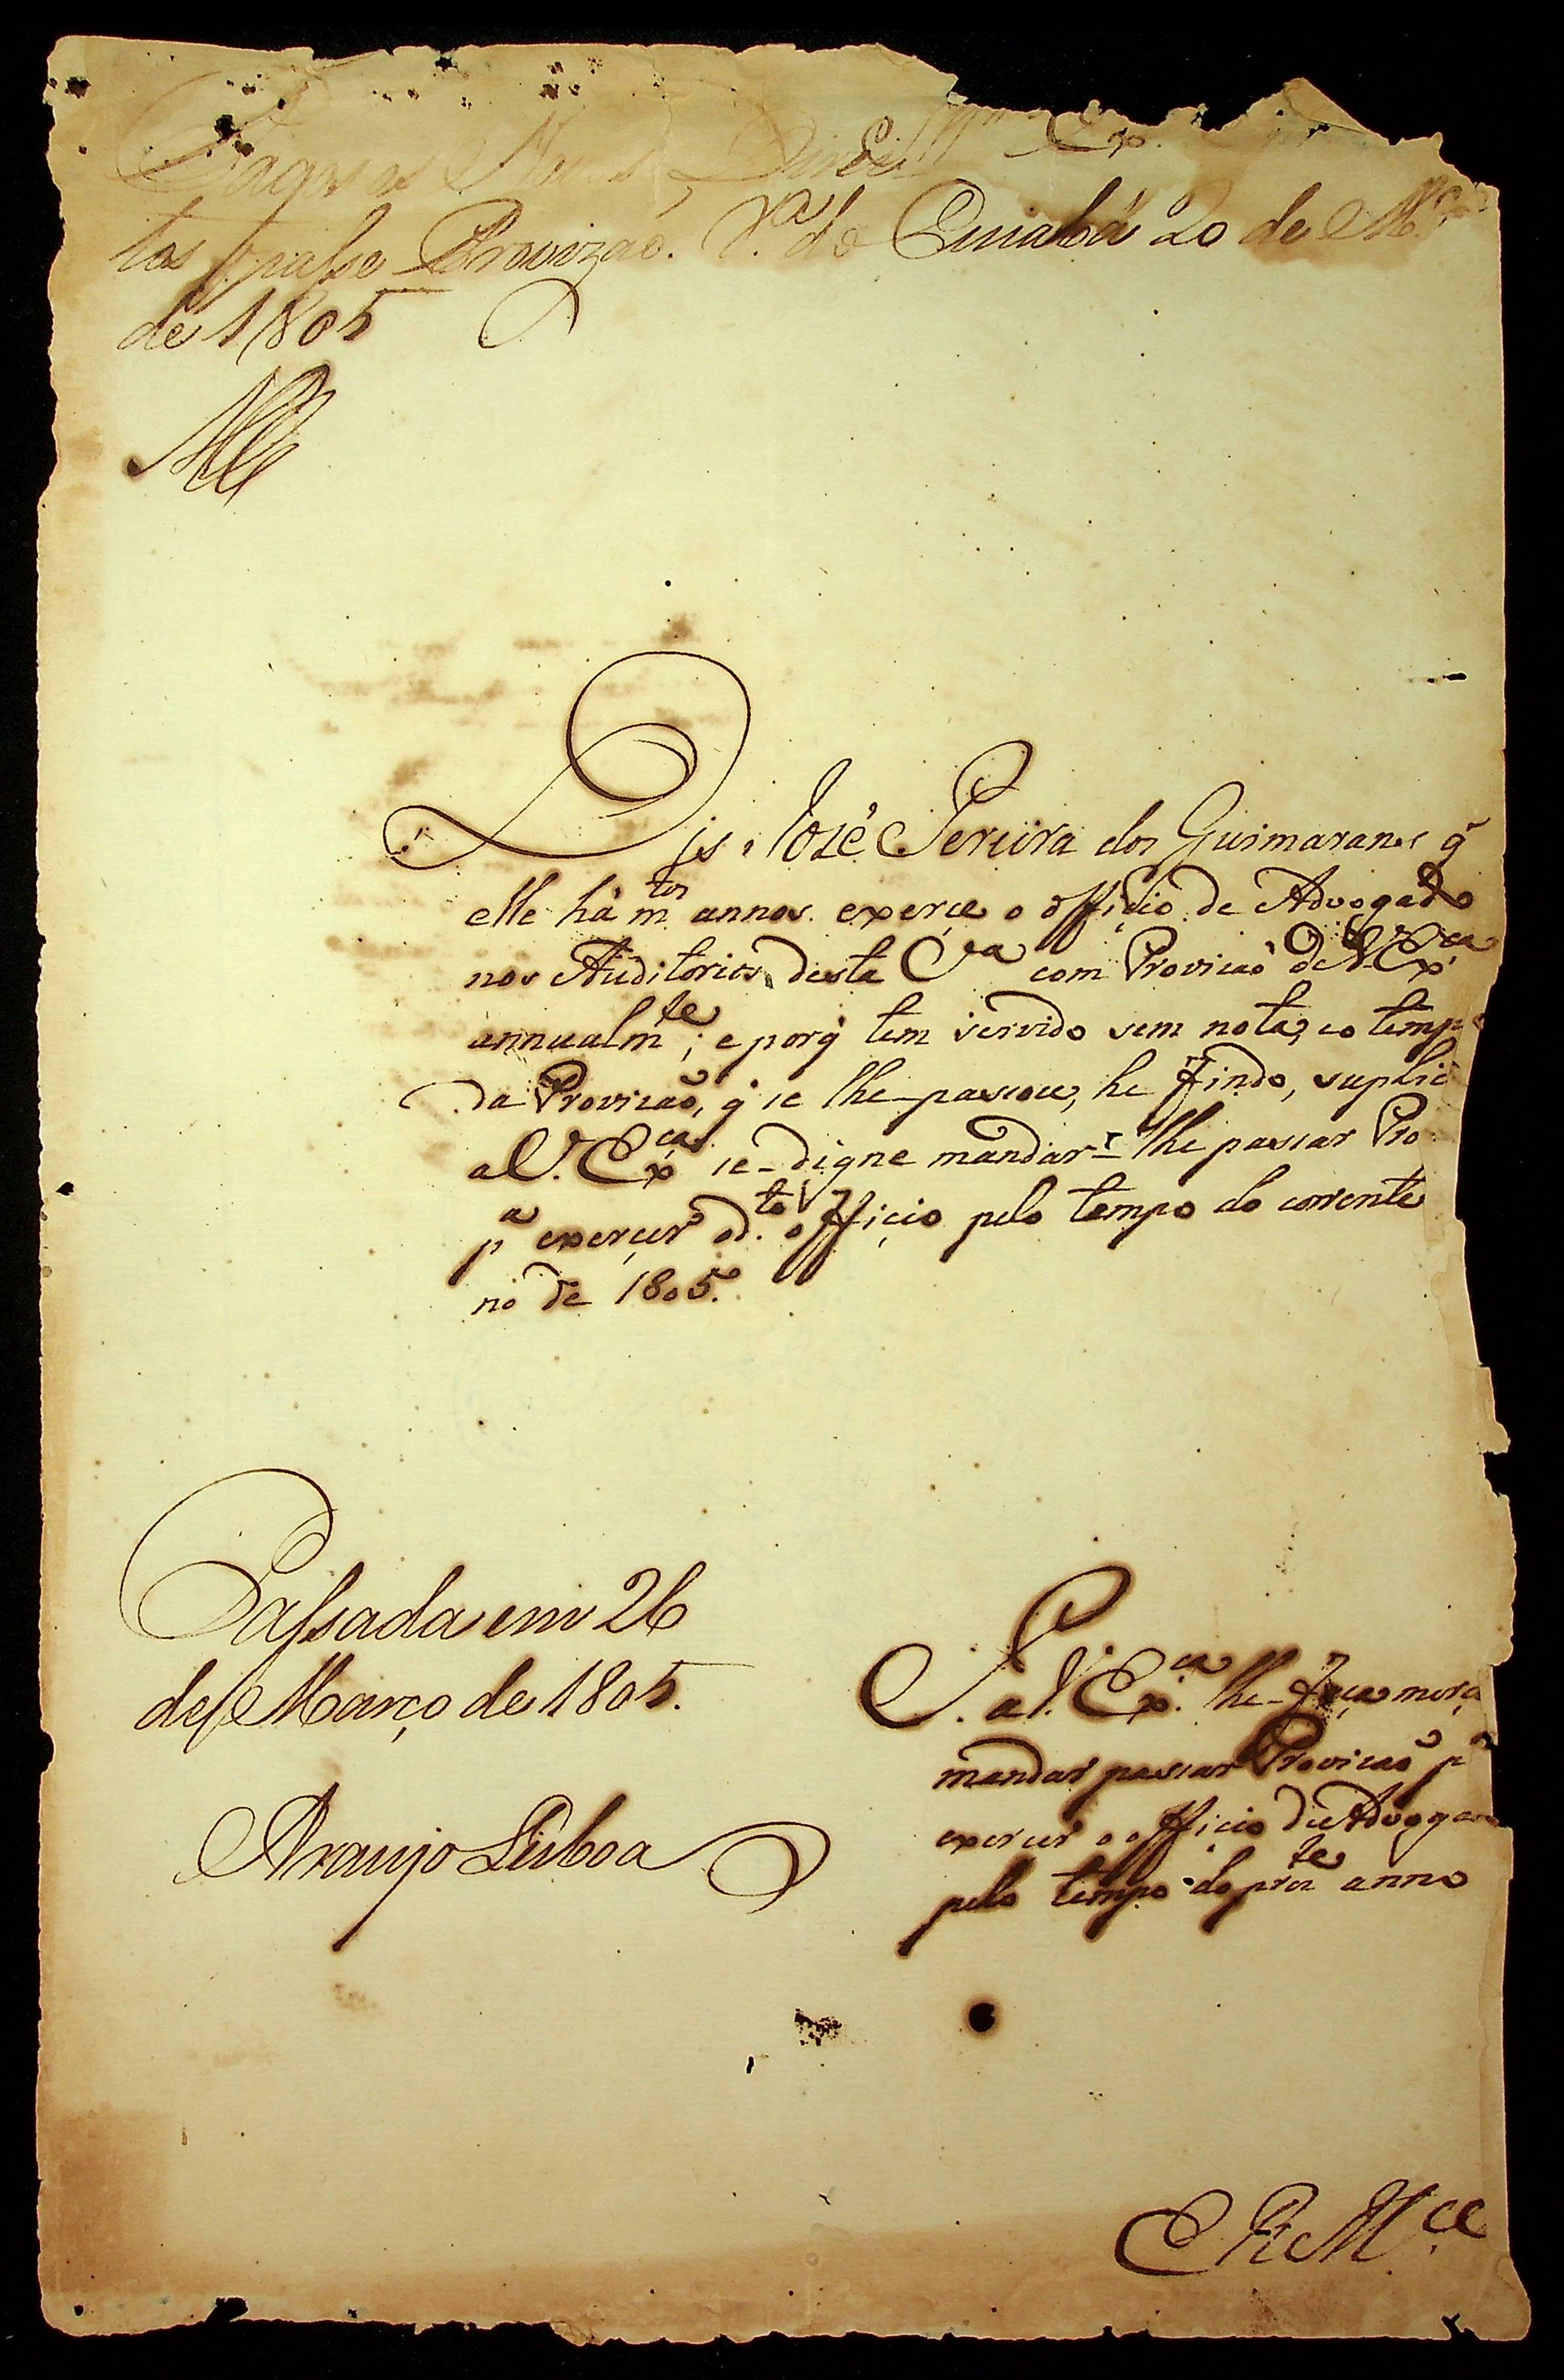 Pagos os Novos Direitos
tos passe Provizaõ. V.ª do Cuiabá 20 de M.ço
de 1805
Dis José Pereira dos Guimaranes q̃
elle há m.tos annos exerçe o offiçio de Advogado
nos Auditorios desta V.ª com Provicaõ de V. Ex.ca
annualm.te; e porq̃ tem servido sem nota, e o tempo
da Provicaõ, q̃ se lhe passou, he findo, suplic
a V. Ex.ca se digne mandar-lhe passar Pro
p.ª exerçer o d.to offiçio pelo tempo do corrente
no de 1805.
Passada em 26
de Março de 1805.
Araujo Lisboa
P. a V. Ex.ca lhe faça merc
mandar passar Provicaõ p.ª
exercer o officio de Advogad
pelo tempo do prez.te anno
E R M.ce